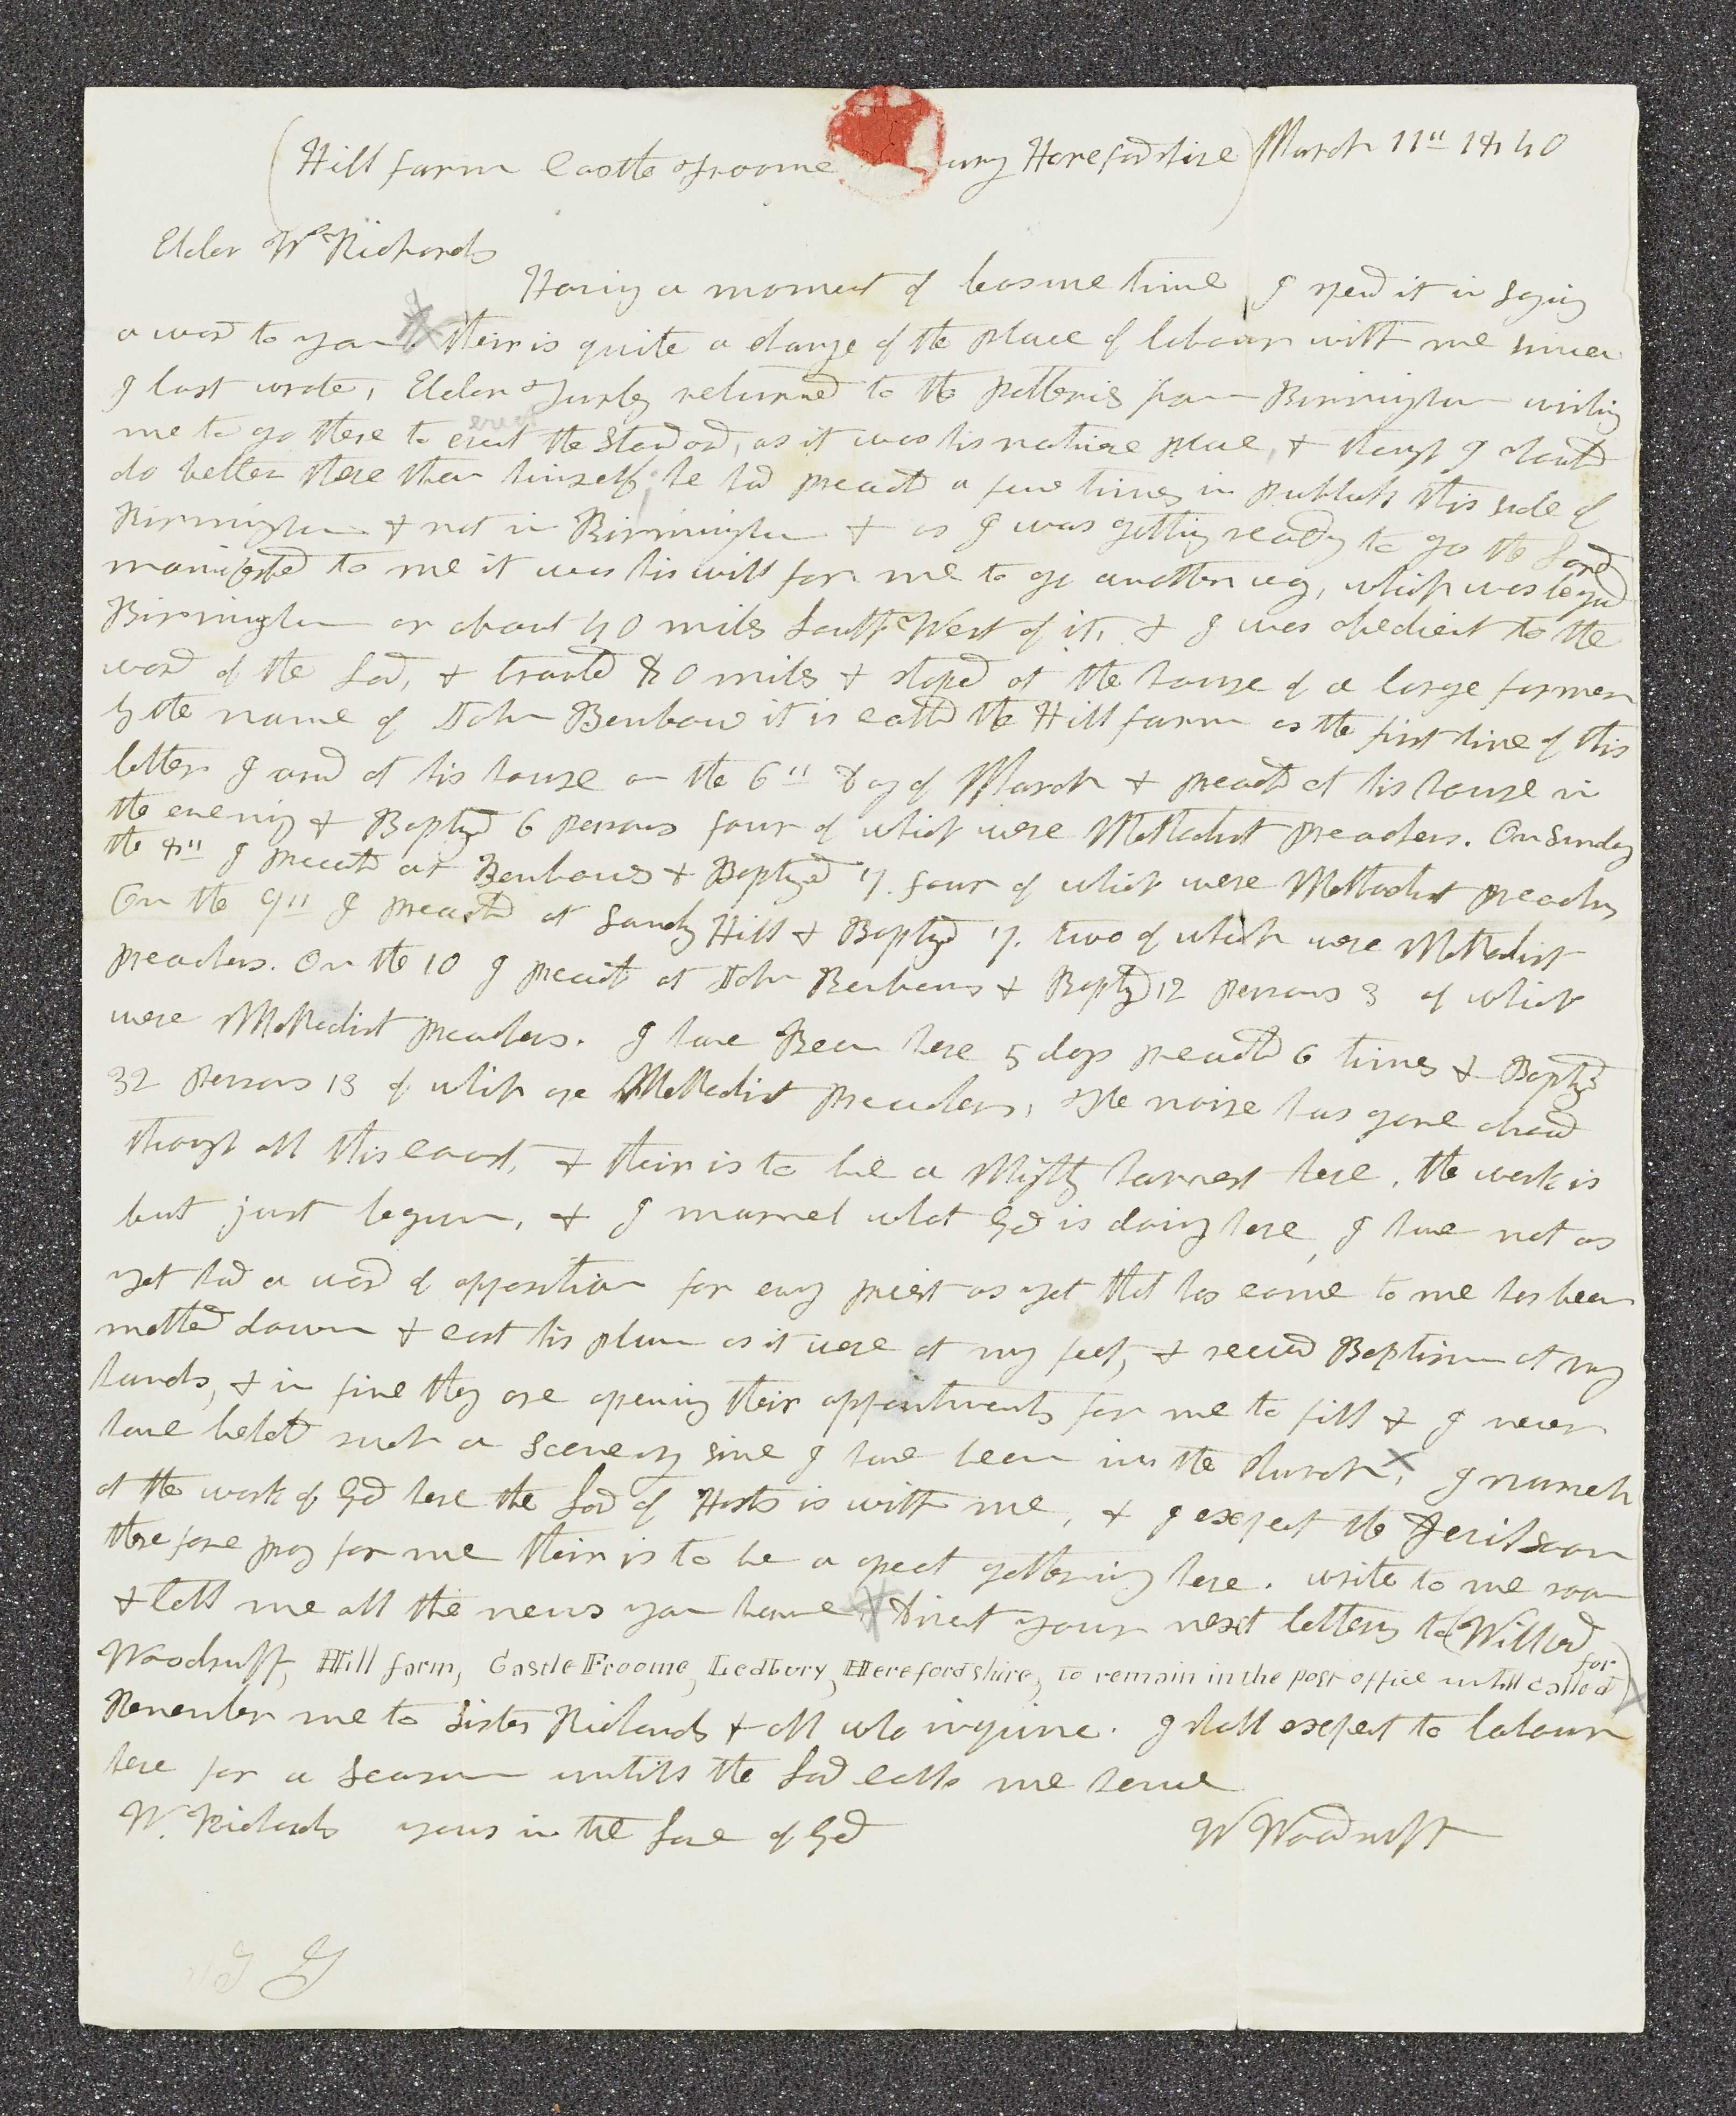 (Hill farm Castle Froome ury Herefordshire) March 11" 1840
Elder Wm Richards
Having a moment of leasure time I spend it in saying
a word to you. their is quite a change of the place of labour with me since
I last wrote, Elder Turley returned to the potteries from Birmingham wishing
me to go there to erect the Standard, as it was his native place, & thought I should
do better there than himself, he had preachd a few times in publick this side of
Birmingham & not in Birmingham & as I was getting ready to go the Lord
manifested to me it was his will for me to go another way, which was beyond
Birmingham or about 40 miles South West of it, & I was obedient to the
word of the Lord, & traveld 80 miles & stoped at the house of a large farmer
by the name of John Benbow it is calld the Hill farm as the first line of this
letter I arivd at his house on the 6" day of March & preachd at his house in
the evening & Baptized 6 persons four of which were Methodist preachers. On Sunday
the 8" I preachd at Benbows & Baptized 7. four of which were Methodist preachers
On the 9" I preachd at Sandy Hill & Baptized 7. two of which were Methodist
preachers. On the 10 I preachd at John Benbows & Baptizd 12 persons 3 of which
were Methodist preachers. I have Been here 5 days preachd 6 times & Baptized
32 persons 13 of which are Methodist preachers, The noise has gone abroad
though all this count, & their is to be a Mighty harvest here, the work is
but just begun, & I marvel what God is doing here, I have not as
yet had a word of opposition for evry priest as yet that has come to me has been
melted down & cast his plum as it were at my feet, & receivd Baptism at my
hands, & in fine they are opening their appointments for me to fill & I never
have beheld such a scenery since I have been in the church, I marvel
at the work of God here the Lord of Hosts is with me, & I expect the Devil soon
therefore pray for me their is to be a great gathering here. write to me soon
& tell me all the news you have, Direct your next letters to (Willford
Woodruff, Hill farm, Castle Froome, Ledbury, Herefordshire, to remain in the post office untill called for)
Remember me to Sister Richards & all who inquire. I shall expect to labour
here for a season untill the Lord calls me hence
W. Richards yours in the Love of God W Woodruff